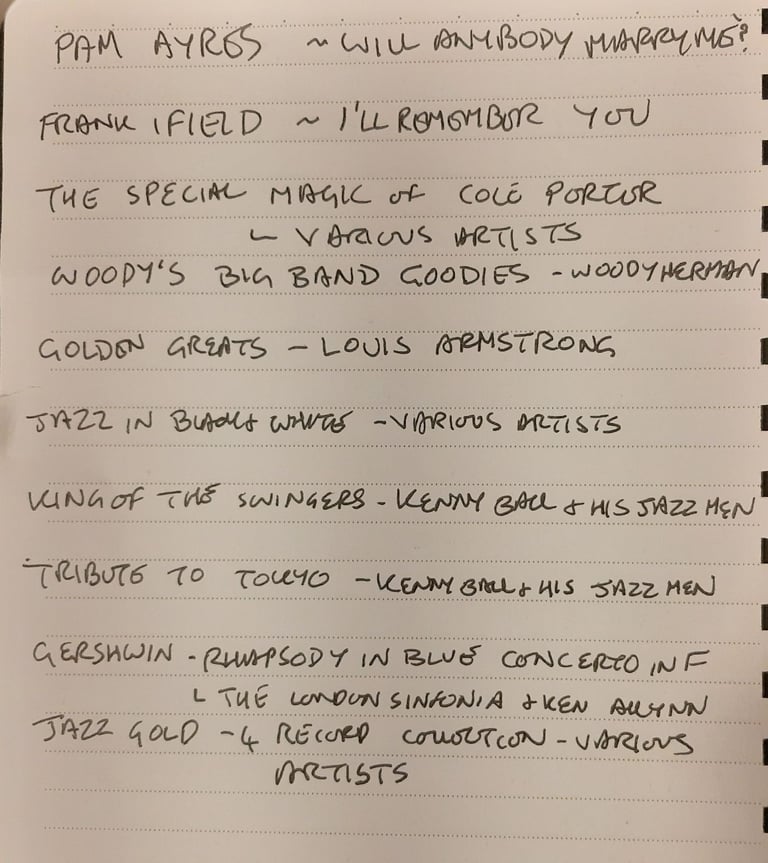 PAM AYRES ~ WILL ANYBODY MARRY ME?
FRANK IFIELD ~ I'LL REMEMBER YOU
THE SPECIAL MAGIC OF COLE PORTER
└ VARIOUS ARTISTS
WOODY'S BIG BAND GOODIES - WOODY HERMAN
GOLDEN GREATS - LOUIS ARMSTRONG
JAZZ IN BLACK & WHITE - VARIOUS ARTISTS
KING OF THE SWINGERS - KENNY BALL & HIS JAZZ MEN
TRIBUTE TO TOKYO - KENNY BALL & HIS JAZZ MEN
GERSHWIN - RHAPSODY IN BLUE CONCERTO IN F
└ THE LONDON SINFONIA & KEN
JAZZ GOLD - 4 RECORD COLLECTION - VARIOUS
ARTISTS